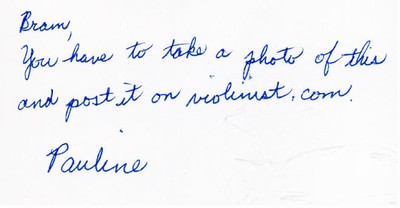 Bram,
You have to take a photo of this
and post it on violinist.com.
Pauline